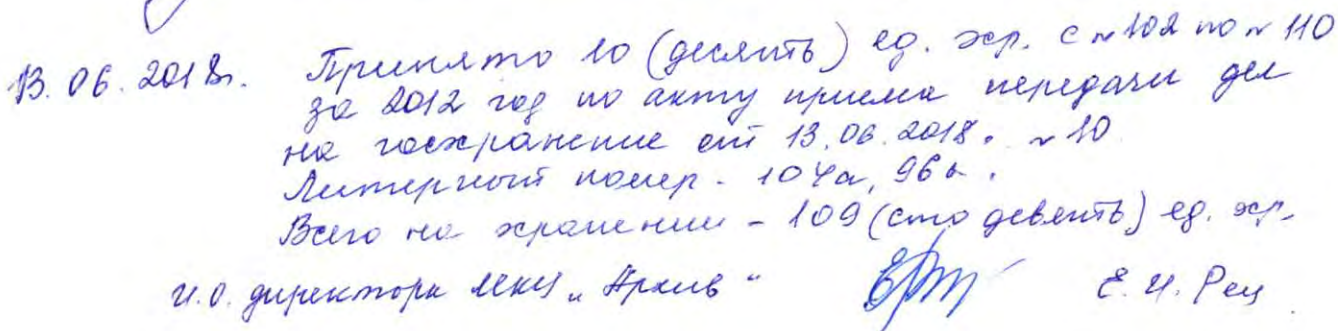 13.06.2018г. Принято 10 (десять) ед. хр. с №102 по №110
за 2012 год по акту приема передачи дел
на госхранение от 13.06.2018. №10
Литерный номер - 104а, 96а.
Всего на хранении - 109 (сто девять) ед. хр.
И.О. директора МКУ "Архив" Е.И. Рец